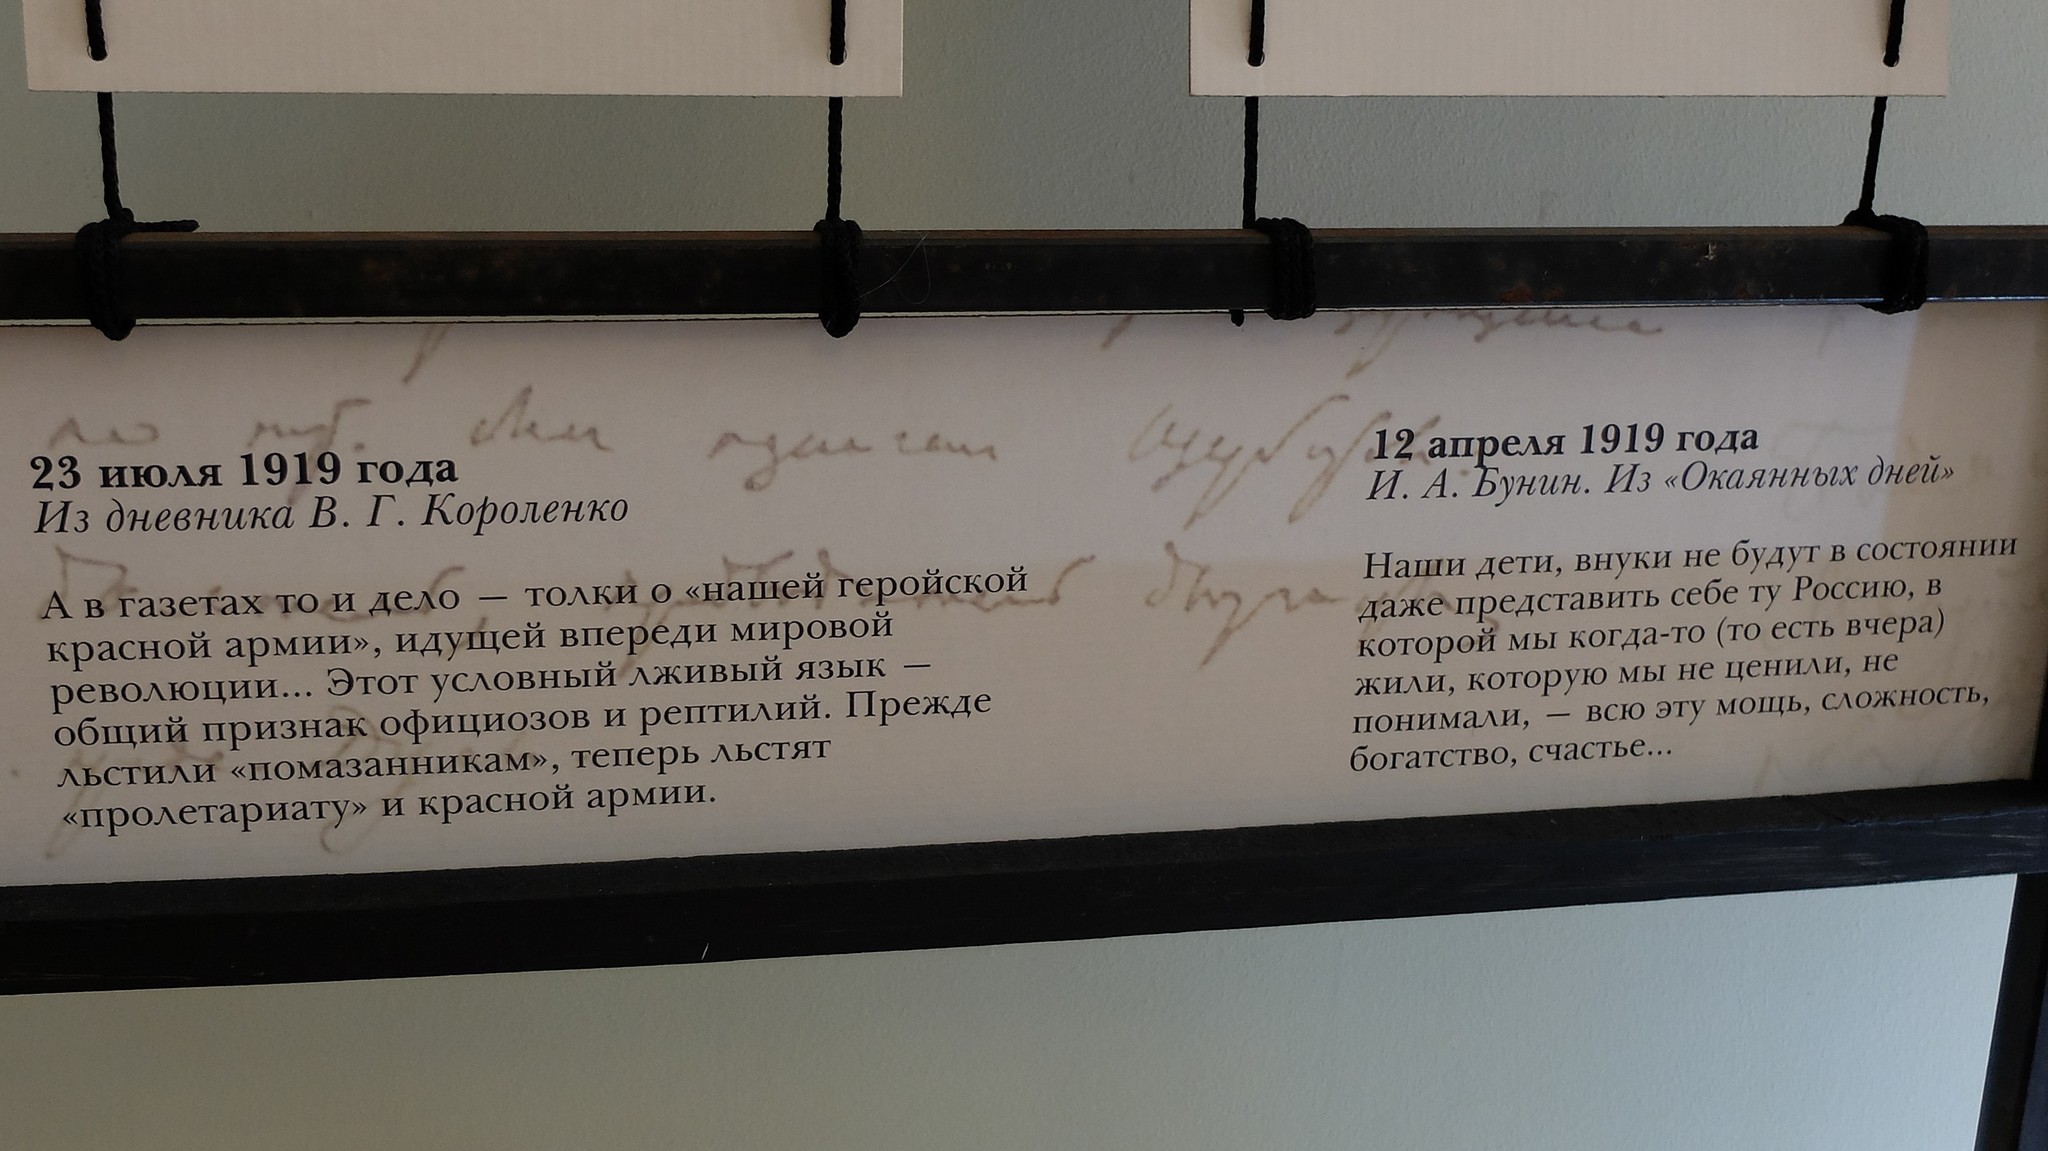 23 июля 1919 года
Из дневника В. Г. Короленко
А в газетах то и дело — толки о «нашей геройской
красной армии», идущей впереди мировой
революции... Этот условный лживый язык —
общий признак официозов и рептилий. Прежде
льстили «помазанникам», теперь льстят
«пролетариату» и красной армии.
12 апреля 1919 года
И. А. Бунин. Из «Окаянных дней»
Наши дети, внуки не будут в состоянии
даже представить себе ту Россию, в
которой мы когда-то (то есть вчера)
жили, которую мы не ценили, не
понимали, — всю эту мощь, сложность,
богатство, счастье...